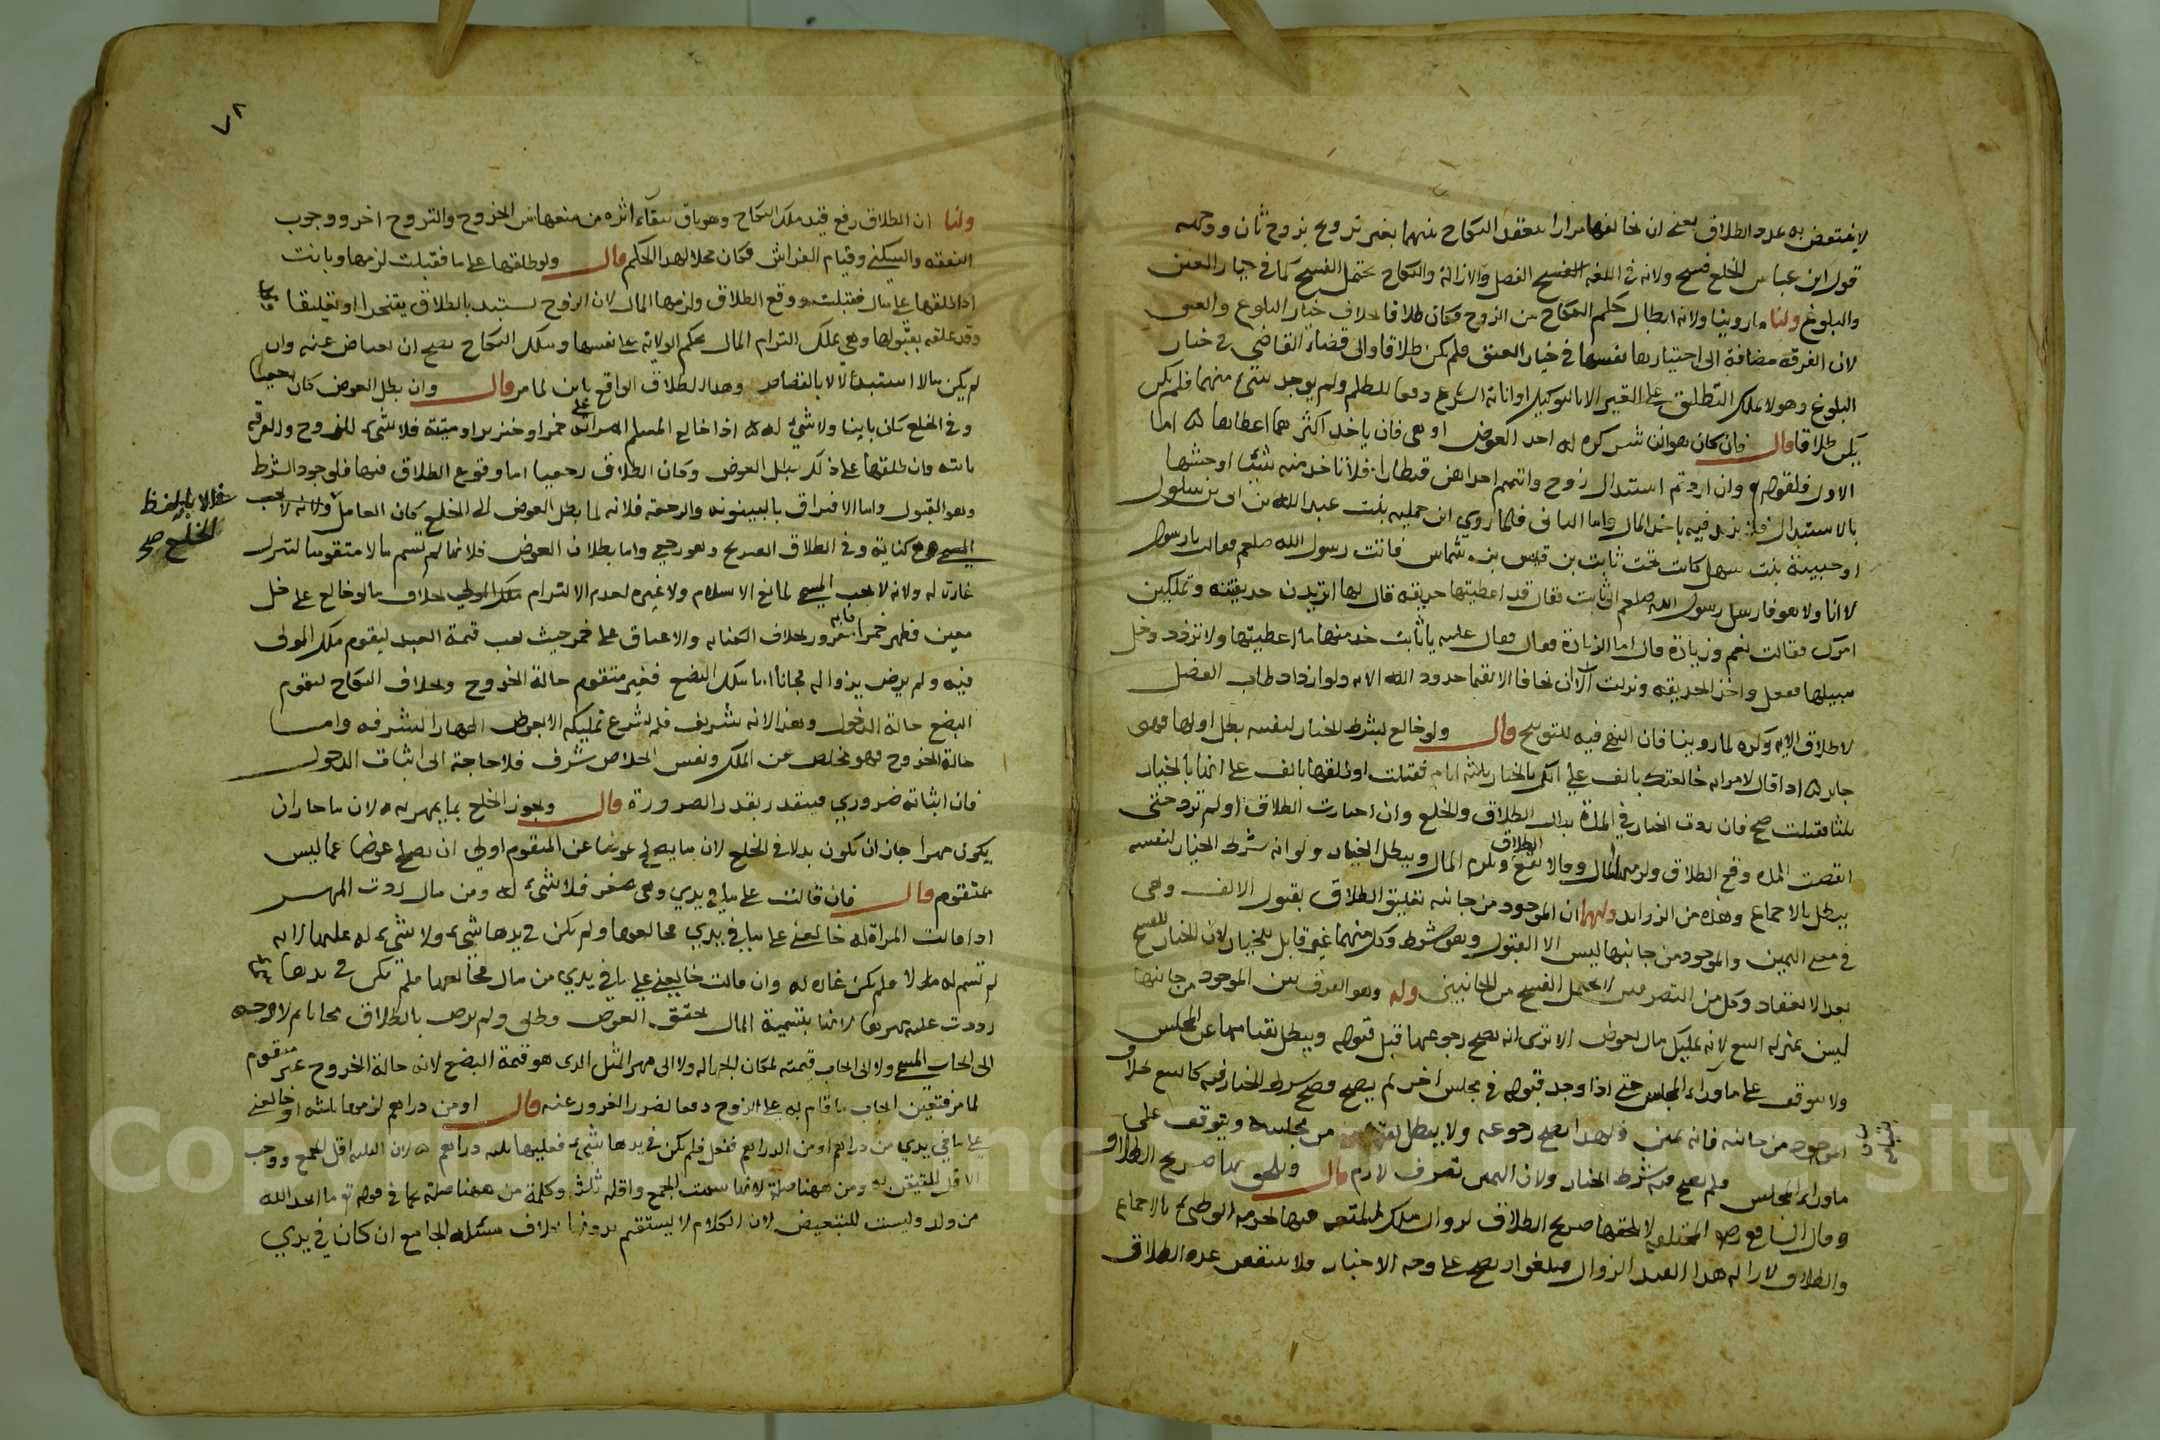 لا ينتقض به عدد الطلاق يعنى ان خالعها مرارا ينعقد النكاح بينهما بغير تزويج بزوج ثان ووجهه
قول ابن عباس الخلع فسخ ولانه في اللغة الفسخ الفصل والازالة والنكاح يحتمل الفسخ كما في خيار العتق
والبلوغ ولنا ما روينا ولانه ابطال حكم النكاح من الزوج فكان طلاقا بخلاف خيار البلوغ والعتق
لان الفرقة مضافة الى اختيارها نفسها في خيار العتق فلم يكن طلاقا والى قضاء القاضي في خيار
البلوغ وهو لا يملك التطليق على الغير الا بالتوكيل او انابة الشرع دفعا للظلم ولم يوجد شيء منهما فلم يكن
يكن طلاقا قال فان كان هو الناشز كره له اخذ العوض او هي فان ياخذ اكثر مما اعطاها ه اما
الاول فلقوله وان اردتم استبدال زوج واتيتم احداهن قنطارا فلا تاخذوا منه شيئا اوحشها
بالاستبدال فلا يزيد فيه باخذ المال واما الثاني فلما روي ان جميلة بنت عبد الله بن ابي بن سلول
او حبيبة بنت سهل كانت تحت ثابت بن قيس بن شماس فاتت رسول الله صلعم فقالت يا رسول
لا انا ولا هو فارسل رسول الله صلعم الى ثابت فقال قد اعطيتها حديقة قال لها اتردين حديقته وتملكين
امرك فقالت نعم وزيادة قال اما الزيادة فقال عليه يا ثابت خذ منها ما اعطيتها ولا تزدد وخل
سبيلها ففعل واخذ الحديقة ونزلت الا ان يخافا الا يقيما حدود الله الاية ولو ازداد طاب الفضل
لاطلاق الاية وكره لما روينا فان النهي فيه للتوبيخ قال ولو خالع بشرط الخيار لنفسه بطل او لها فهو
جايز ه اذا قال لامراته خالعتك بالف على انك بالخيار ثلثة ايام فقبلت او طلقها بالف على انها بالخيار
ثلثا فقبلت صح فان ردت الخيار في المدة بطل الطلاق والخلع وان اختارت الطلاق او لم ترد حتى
انقضت المدة وقع الطلاق ولزمها المال وقالا يقع الطلاق ويلزم المال ويبطل الخيار ولو انه شرط الخيار لنفسه
يبطل بالاجماع وهذه من الزوايد ولهما ان الموجود من جانبه تعليق الطلاق بقبول الالف وهي
في معنى اليمين والموجود من جانبها ليس الا القبول وهو شرط وكل منهما غير قابل للخيار لان الخيار للفسخ
بعد الانعقاد وكل من التصرفين لا يحتمل الفسخ من الجانبين وله وهو الفرق بين الموجود من جانبها
ليس بمنزلة البيع لانه تمليك مال بعوض الا ترى انه يصح رجوعها قبل قبوله ويبطل بقيامها عن المجلس
ولا يتوقف على ما وراء المجلس حتى اذا وجد قبوله في مجلس اخر لم يصح وصح شرط الخيار فيه كالبيع بخلاف
الموجود من جانبه فانه يمين ولهذا يصح رجوعه ولا يبطل من مجلسه ويتوقف على
ما وراء المجلس فلم يصح فيه شرط الخيار ولان اليمين تصرف لازم قال ويلحق بها صريح الطلاق
وقال الشافعي رضه المختلعة لا يلحقها صريح الطلاق لزوال ملك المتعة فيها لحرمة الوطئ بالاجماع
والطلاق لازالة هذا القيد الزوال فيلغوا ويصح على وجه الاخبار فلا ينتقض عدد الطلاق
٧٨
ولنا ان الطلاق رفع قيد ملك النكاح وهو باق ببقاء اثره من منعها من الخروج والتزوج اخر ووجوب
النفقة والسكنى وقيام الفراش فكان محلا لهذا الحكم قال ولو طلقها على ما فقبلت لزمها وبانت
اذا طلقها على مال فقبلت ووقع الطلاق ولزمها المال لان الزوج يستبد بالطلاق تنجيزا او تعليقا
وقد علقه بقبولها وهي تملك التزام المال بحكم الولاية على نفسها وملك النكاح يصح ان يعتاض عنه وان
لم يكن مالا استبدالا بالقصاص وهذا الطلاق الواقع باين لما مر قال وان بطل العوض كان رجعيا
وفي الخلع كان باينا ولا شيء له ه اذا خالع المسلم امراته على خمر او خنزير او ميتة فلا شيء للزوج والفرقة
باينة وان طلقها على ذلك بطل العوض وكان الطلاق رجعيا اما وقوع الطلاق فيها فلوجود الشرط
وهو القبول واما الافتراق بالبينونة والرجعة فلانه لما بطل العوض في الخلع كان العامل
غالا بلفظ
الخلع صح
وهو كناية وفي الطلاق الصريح وهو رجعي واما بطلان العوض فلانها لم تسم مالا متقوما لتصير
غارة له ولانه لا يجب المسمى لمانع الاسلام ولا غيره لعدم الالتزام بخلاف ما لو خالع على خل
معين فظهر خمرا فانه مغرور بخلاف الكتابة والاعتاق على خمر حيث يجب قيمة العبد لتقوم ملك المولى
فيه ولم يرض بزواله مجانا اما ملك البضع فغير متقوم حالة الخروج وبخلاف النكاح لتقوم
البضع حالة الدخول وهذا لانه شريف فلم يشرع تمليكه الا بعوض اظهارا لشرفه واما
حالة الخروج فهو تخلص عن الملك ونفس الخلاص شرف فلا حاجة الى اثبات الدخول
فان اثباته ضروري فيتقدر بقدر الضرورة قال ويجوز الخلع بما يمهر به ه لان ما جاز ان
يكون مهرا جاز ان يكون بدلا في الخلع لان ما يصلح عوضا عن المتقوم اولى ان يصلح عوضا عما ليس
بمتقوم قال فان قالت على ما في يدي وهي صفر فلا شيء له ومن مال ردت المهر
اذا قالت المراة له خالعني على ما في يدي فخالعها ولم يكن في يدها شيء ولا شيء له عليها لانه
لم تسم له مالا فلم يكن غارة له وان قالت خالعني على ما في يدي من مال فخالعها فلم يكن في يدها شيء
ردت عليه مهرها لانها بتسمية المال تحقق العوض وطلق ولم يرض بالطلاق مجانا ثم لا وجه
الى ايجاب المسمى ولا الى ايجاب قيمته لمكان الجهالة ولا الى مهر المثل الذي هو قيمة البضع لانه حالة الخروج غير متقوم
لما مر فتعين ايجاب ما قام به على الزوج دفعا لضرر الغرور عنه قال او من دراهم لزمها ثلثة او خالعني
على ما في يدي من دراهم او من الدراهم ففعل فلم يكن في يدها شيء فعليها ثلثة دراهم ه لان الثلثة اقل الجمع ووجب
الاقل المتيقن به ومن ههنا صلة لانها سمت الجمع واقله ثلث وكلمة من ههنا صلة كما في قوله تع ما اتخذ الله
من ولد وليست للتبعيض لان الكلام لا يستقيم بدونها بخلاف مسئلة الجامع ان كان في يدي
Copyright © King Saud University